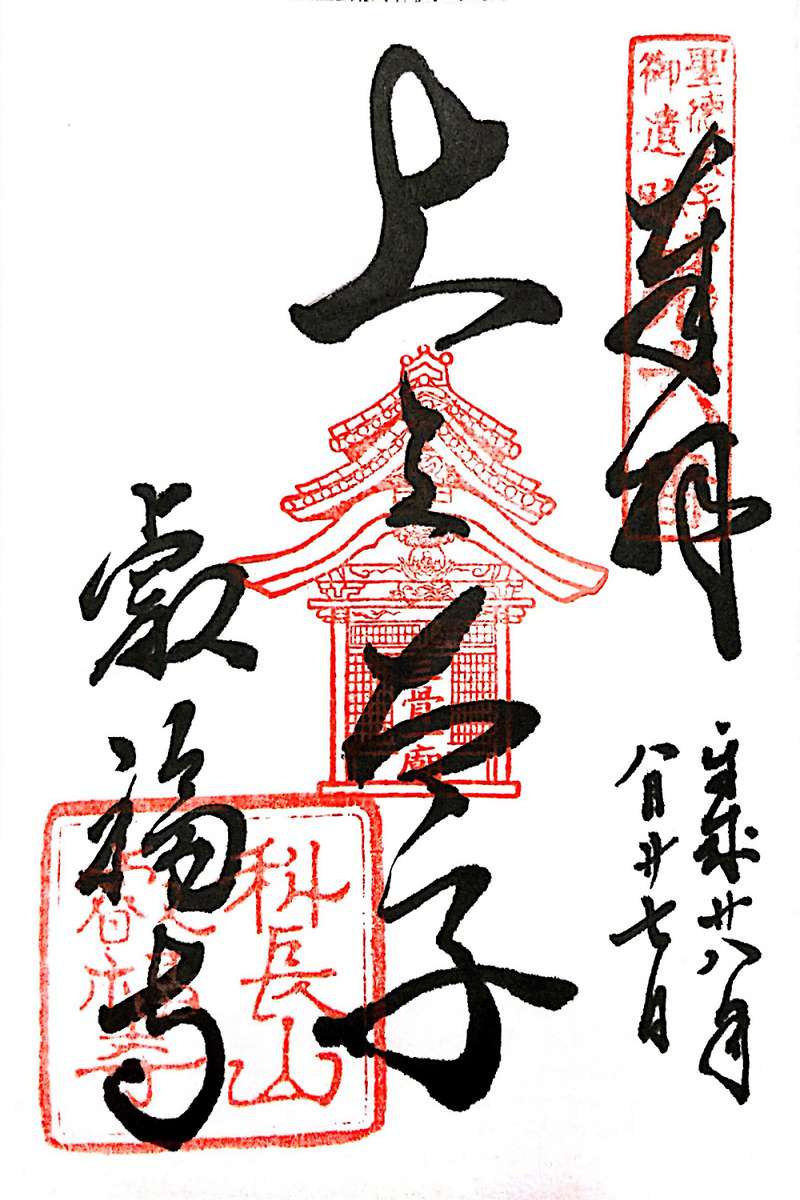 聖徳太子
御遺跡
奉拝
平成廿八年
八月廿七日
上宮太子
骨
廟
叡福寺
科長山